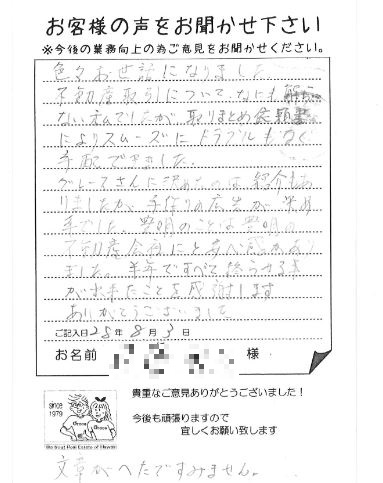 お客様の声をお聞かせ下さい
※今後の業務向上の為ご意見をお聞かせください。
色々お世話になりました
不動産取引について、なにも
ないボクでしたが、取りまとめ依頼書
によりスムーズにトラブルもなく
手配できました。
グレースさんに決めたのは紹介もあ
りましたが、手作りの広告が決め
手でした。豊明のことは豊明の
不動産会社にとあべ感があり
ました。半年ですべて終らせる事
が出来たことを感謝します
ありがとうございました。
ご記入日 28年 8月 3日
お名前 様
since
1979
Grace Grace
貴重なご意見ありがとうございました！
今後も頑張りますので
宜しくお願い致します
文章がへたですみません。